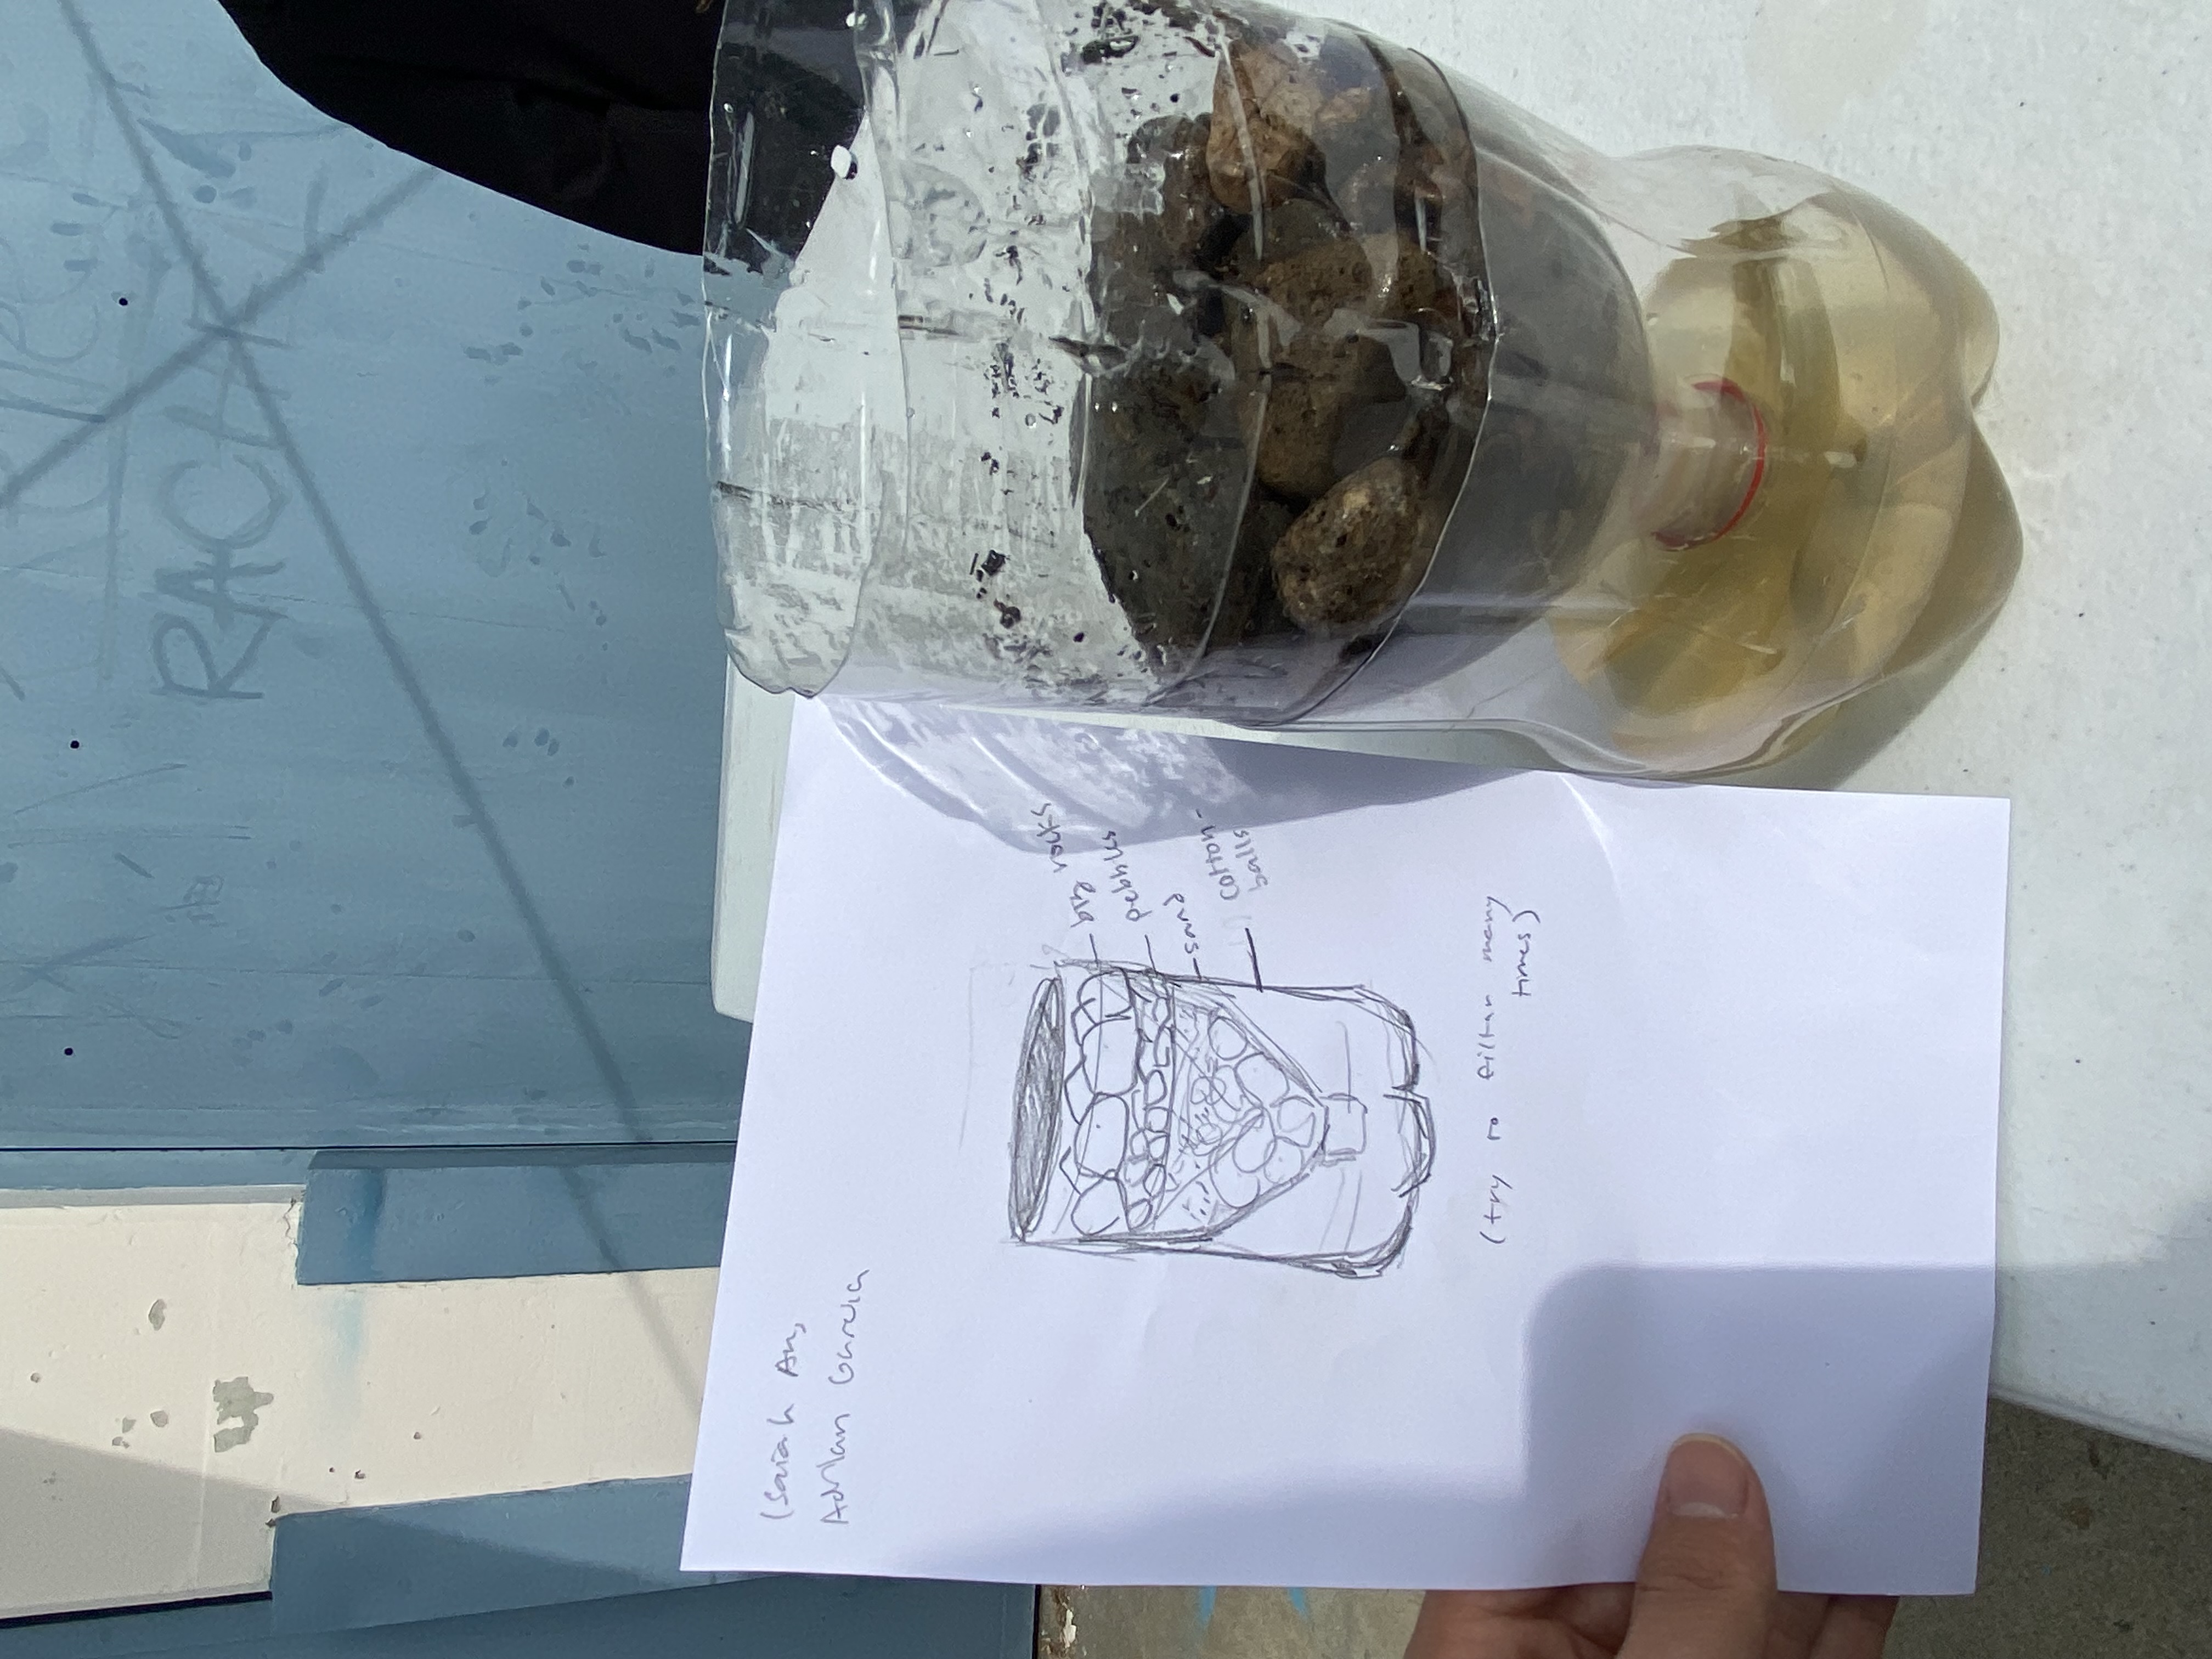 RACHE
Isaiah An,
Adrian Garcia
big rocks
pebbles
sand
cotton-
balls
(try to filtar many
times)